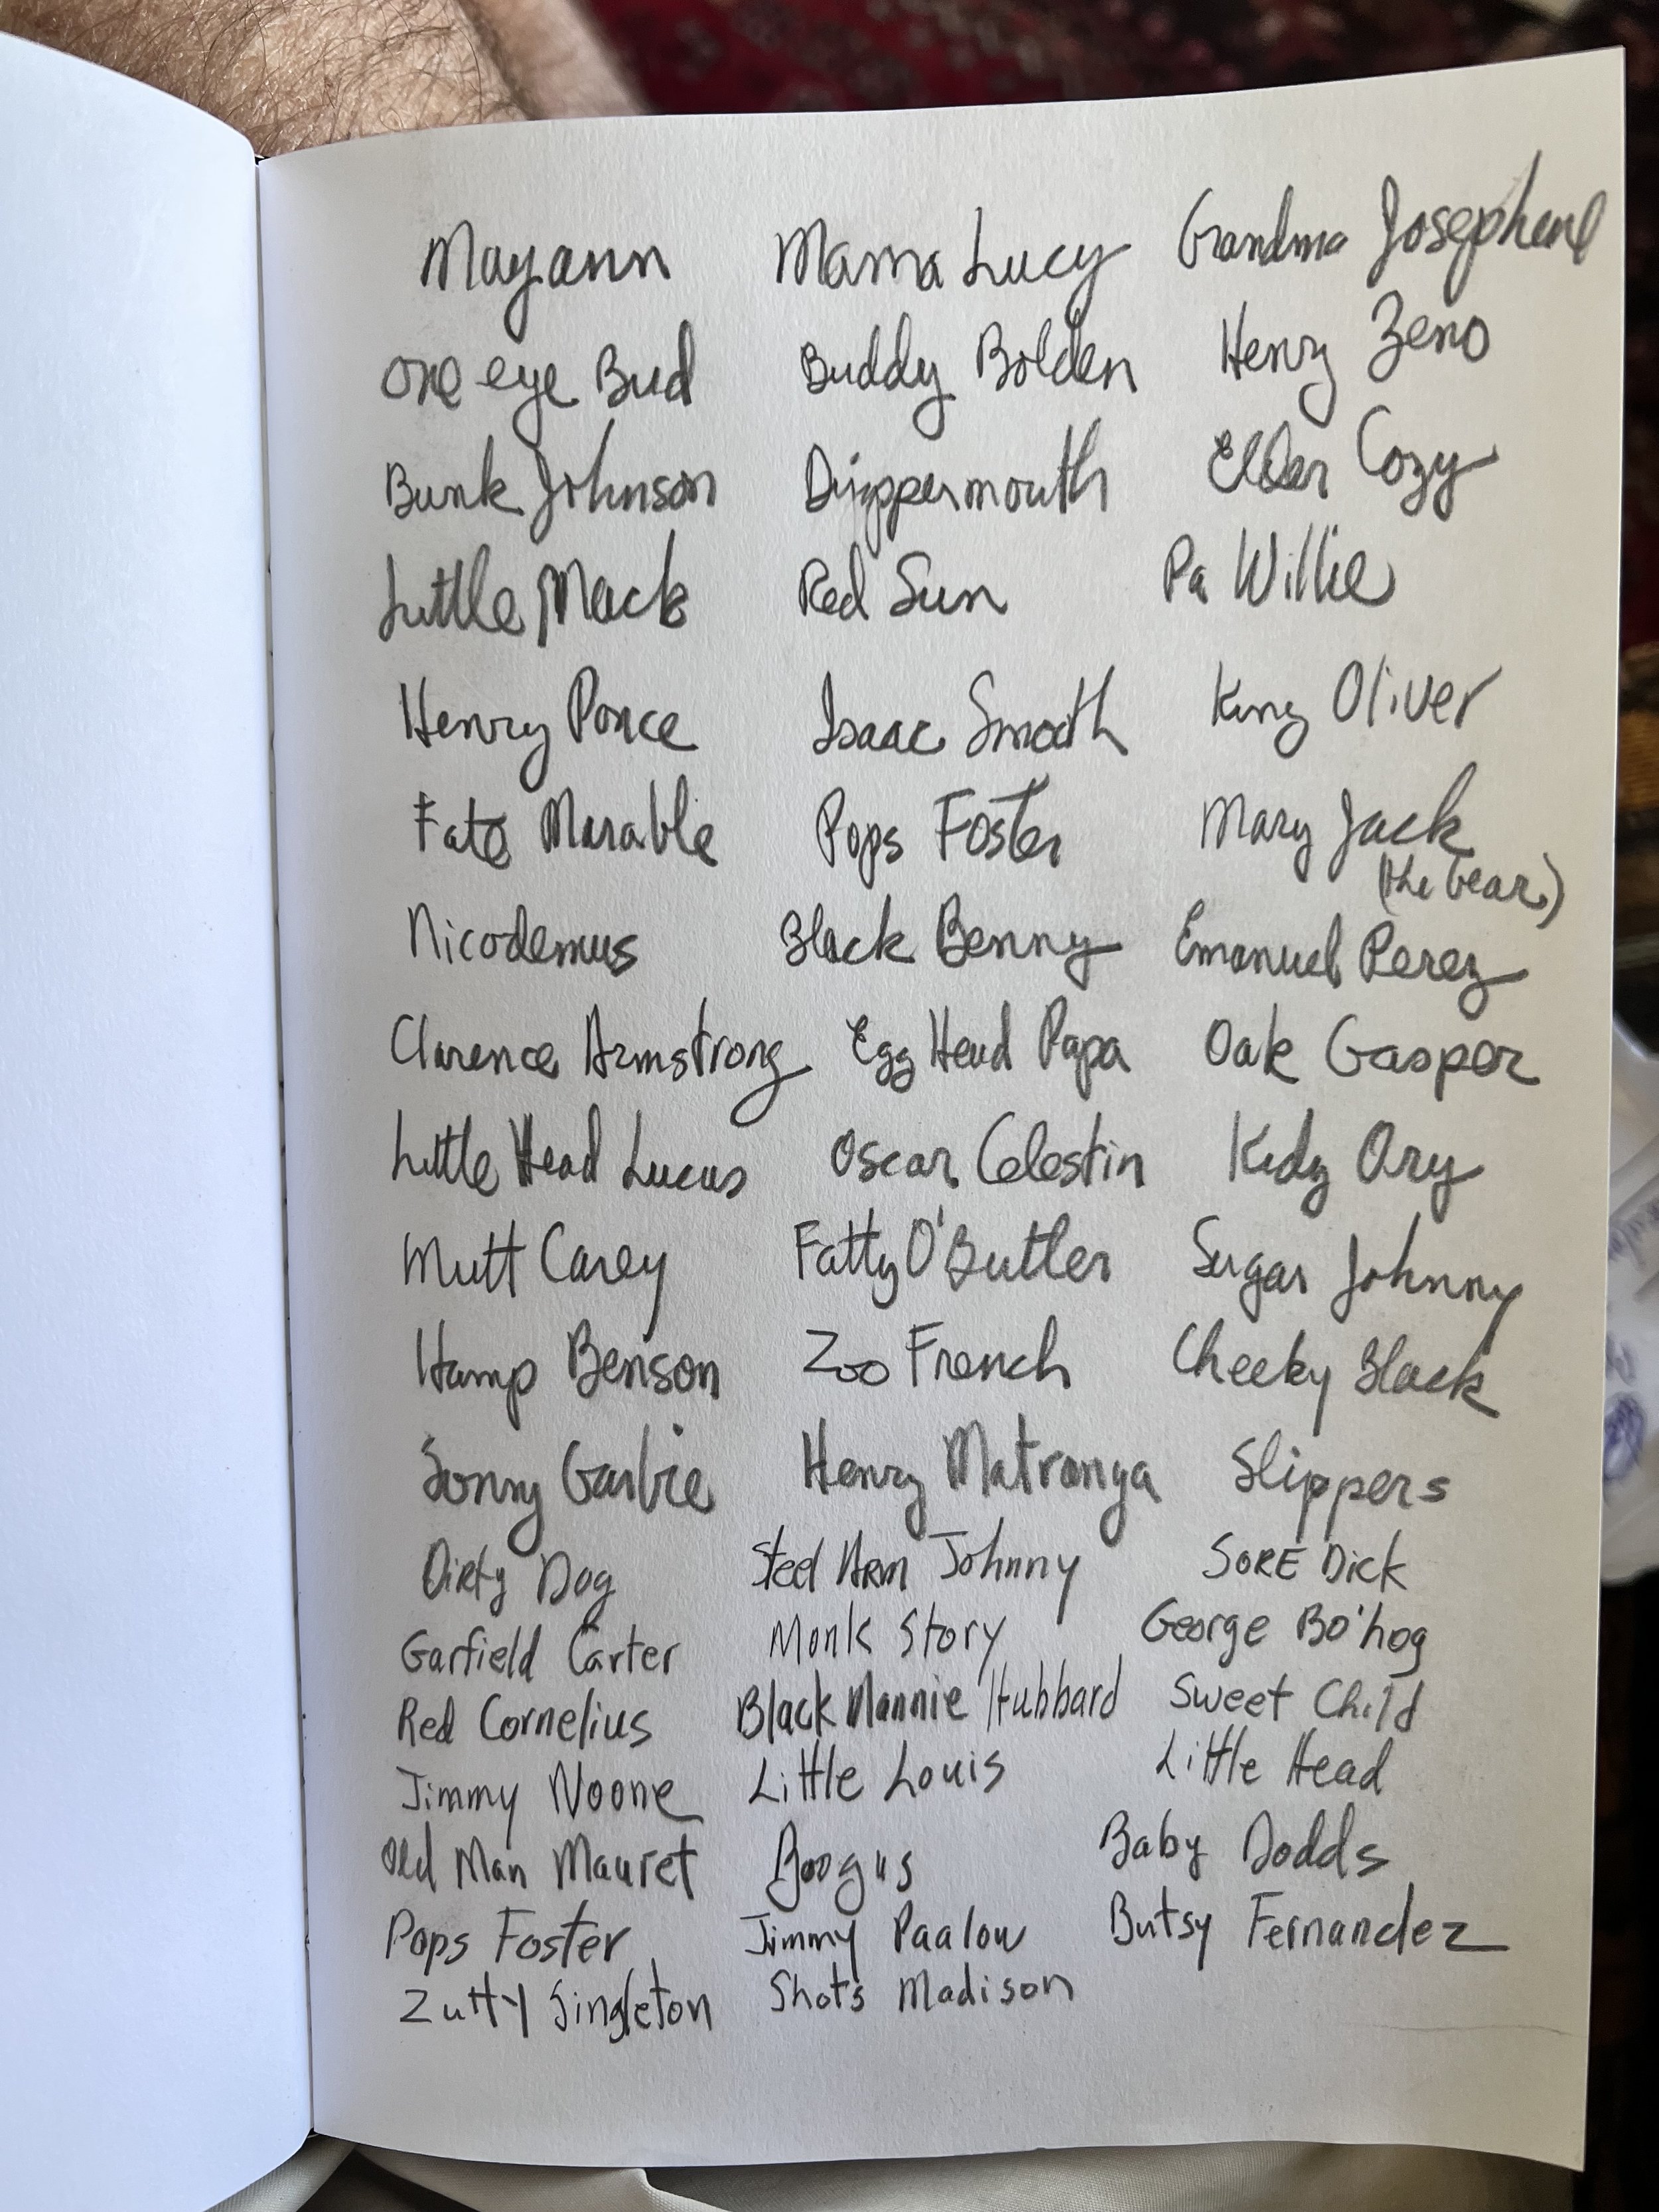 Mayann Mama Lucy Grandma Josephene
One eye Bud Buddy Bolden Henry Zeno
Bunk Johnson Dippermouth Elder Cozy
Little Mack Red Sun Pa Willie
Henry Ponce Isaac Smooth King Oliver
Fate Marable Pops Foster Mary Jack
(the bear)
Nicodemus Black Benny Emanuel Perez
Clarence Armstrong Egg Head Papa Oak Gasper
Little Head Lucus Oscar Celestin Kidy Ory
Mutt Carey Fatty O'Butler Sugar Johnny
Hamp Benson Zoo French Cheeky Black
Sonny Garbie Henry Matranga Slippers
Dirty Dog Steel Arm Johnny SORE Dick
Garfield Carter Monk Story George Bo'hog
Red Cornelius Black Mannie Hubbard Sweet Child
Jimmy Noone Little Louis Little Head
Old Man Mauret Boogus Baby Dodds
Pops Foster Jimmy Paalow Butsy Fernandez
Zutty Singleton Shots Madison